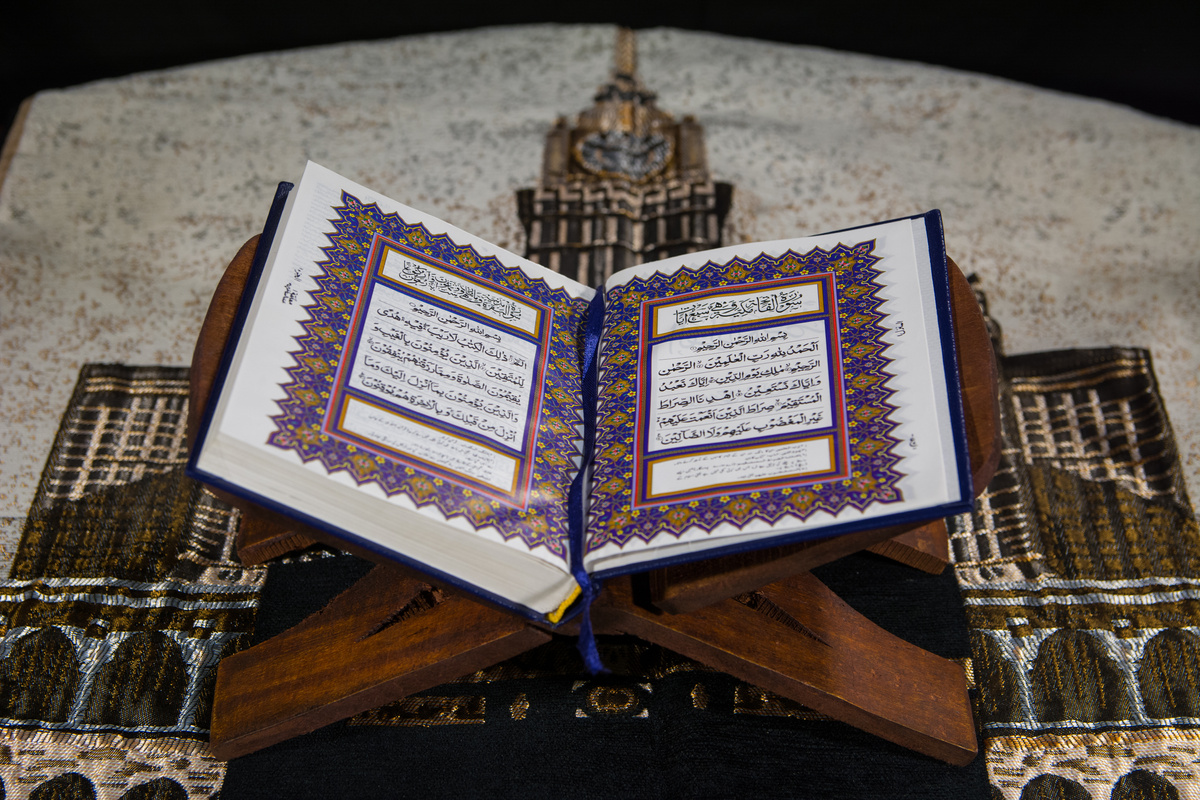 سُوۡرَةُ الۡفَاتِحَةِ مَكِّيَّةٌ وَّهِيَ سَبۡعُ اٰيَاتٍ
بِسۡمِ اللهِ الرَّحۡمٰنِ الرَّحِيۡمِ
اَلۡحَمۡدُ لِلّٰهِ رَبِّ الۡعٰلَمِيۡنَ الرَّحۡمٰنِ
الرَّحِيۡمِ مٰلِكِ يَوۡمِ الدِّيۡنِ اِيَّاكَ نَعۡبُدُ
وَاِيَّاكَ نَسۡتَعِيۡنُ اِهۡدِنَا الصِّرَاطَ
الۡمُسۡتَقِيۡمَ صِرَاطَ الَّذِيۡنَ اَنۡعَمۡتَ عَلَيۡهِمۡ
غَيۡرِ الۡمَغۡضُوۡبِ عَلَيۡهِمۡ وَلَا الضَّآلِّيۡنَ
بِسۡمِ اللهِ الرَّحۡمٰنِ الرَّحِيۡمِ
الٓمّٓ ذٰلِكَ الۡكِتٰبُ لَا رَيۡبَ فِيۡهِ هُدًى
لِّلۡمُتَّقِيۡنَ الَّذِيۡنَ يُؤۡمِنُوۡنَ بِالۡغَيۡبِ وَ
يُقِيۡمُوۡنَ الصَّلٰوةَ وَمِمَّا رَزَقۡنٰهُمۡ يُنۡفِقُوۡنَ
وَالَّذِيۡنَ يُؤۡمِنُوۡنَ بِمَآ اُنۡزِلَ اِلَيۡكَ وَمَآ
اُنۡزِلَ مِنۡ قَبۡلِكَ وَبِالۡاٰخِرَةِ هُمۡ يُوۡقِنُوۡنَ